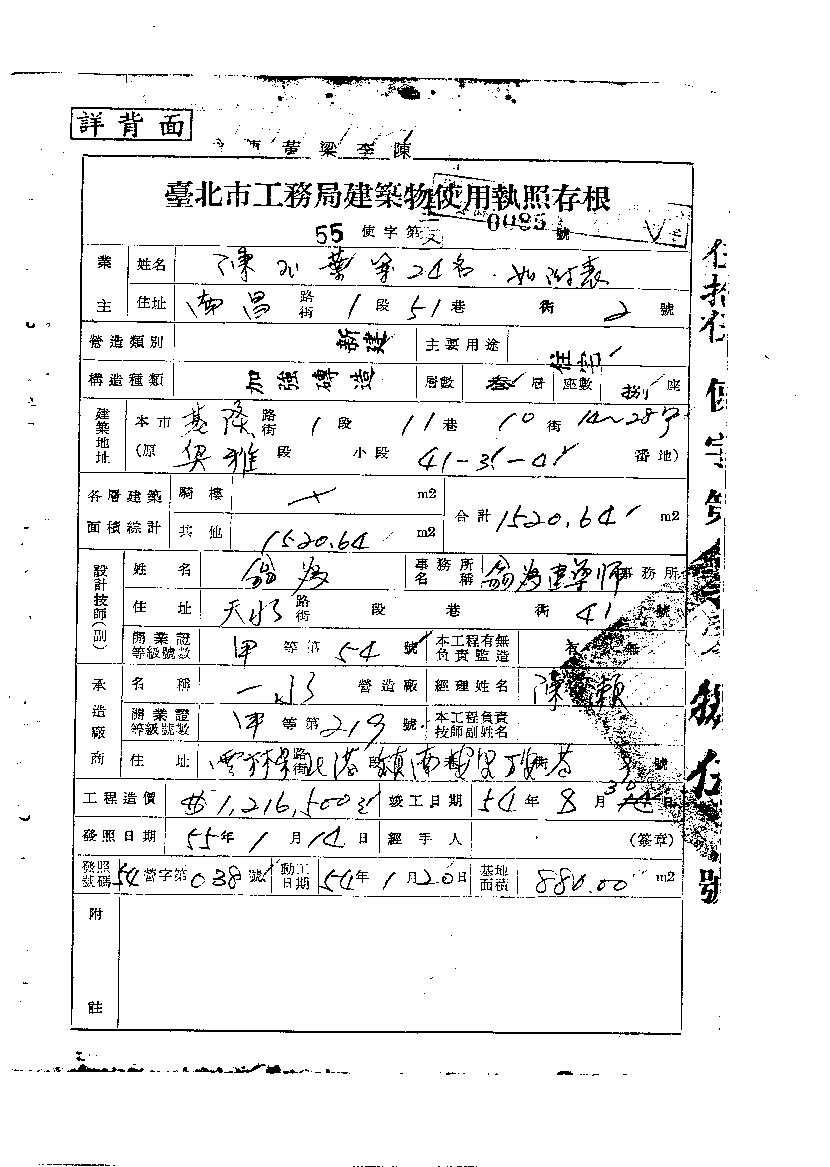 詳背面
陳 李 梁 黃
臺北市工務局建築物使用執照存根
55 使字第 0085 號
業主 姓名 陳 葉等24名 如附表
住址 南昌 路街 1 段 51 巷 街 2 號
營造類別 新建 主要用途 住宅
構造種類 加強磚造 層數 層 座數 捌 座
建築地址 本市 基隆 路街 1 段 11 巷 10 街 14~28號
(原 興雅 段 小段 41-3 -4 番地)
各層建築面積綜計 騎樓 m2 合計 1520.64 m2
其他 1520.64 m2
設計技師(副) 姓名 翁為 事務所名稱 翁為建築師事務所
住址 天水 路街 段 巷 街 41 號
開業證等級號數 甲 等第 54 號 本工程有無負責監造 有 無
承造廠商 名稱 營造廠 經理姓名 陳 賴
開業證等級號數 甲 等第 219 號 本工程負責技師副姓名
住址 雲林縣北港鎮南 里 路街 段 巷 街 號
工程造價 1,216,500 竣工日期 54 年 8 月 日
發照日期 55 年 1 月 14 日 經手人 (簽章)
發照號碼 54 營字第 038 號 動工日期 54 年 1 月 20 日 基地面積 880.00 m2
附註
伍拾伍 使字第 號